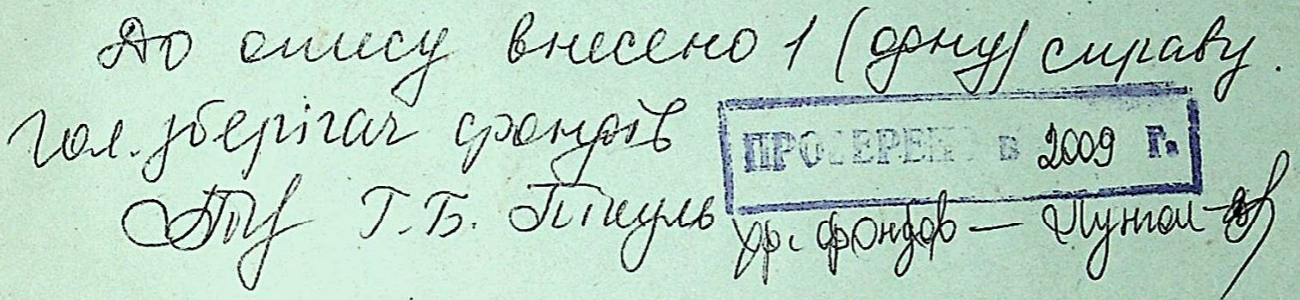 До опису внесено 1 (одну) справу.
Гол. зберігач фондів
Г.Б.
ПРОВЕРЕНО в 2009 г.
хр. фондов —